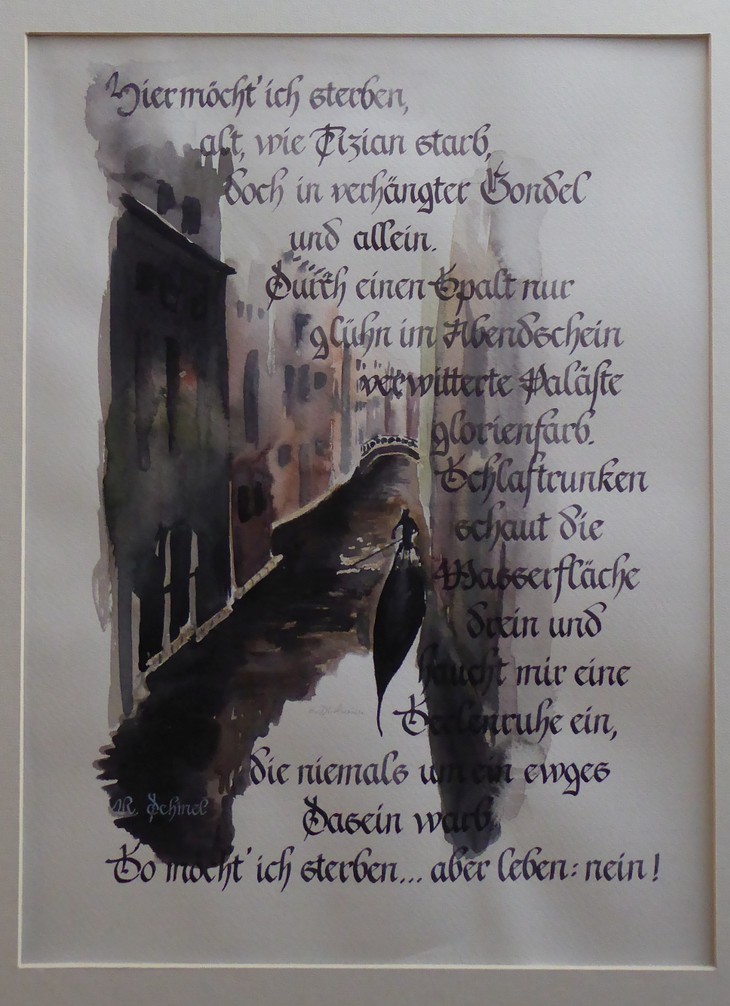 Hier möcht' ich sterben,
alt, wie Tizian starb,
doch in verhängter Gondel
und allein.
Durch einen Spalt nur
glühn im Abendschein
verwitterte Paläste
glorienfarb.
Schlaftrunken
schaut die
Wasserfläche
drein und
haucht mir eine
Seelenruhe ein,
die niemals um ein ewges
Dasein warb.
So möcht' ich sterben... aber leben: nein!